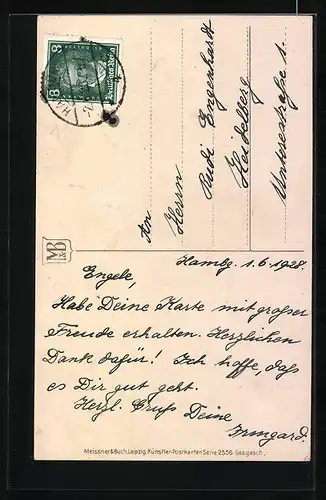 8 Deutsches Reich 8
An
Herrn
Rudi Engenhardt
Heidelberg
Unterestraße 1.
M&B
Hambg. 1.6.1928.
Engele,
Habe Deine Karte mit großer
Freude erhalten. Herzlichen
Dank dafür! Ich hoffe, daß
es Dir gut geht.
Herzl. Gruß Deine
Irmgard.
Meissner & Buch, Leipzig. Künstler-Postkarten Serie 2556. Ges. gesch.